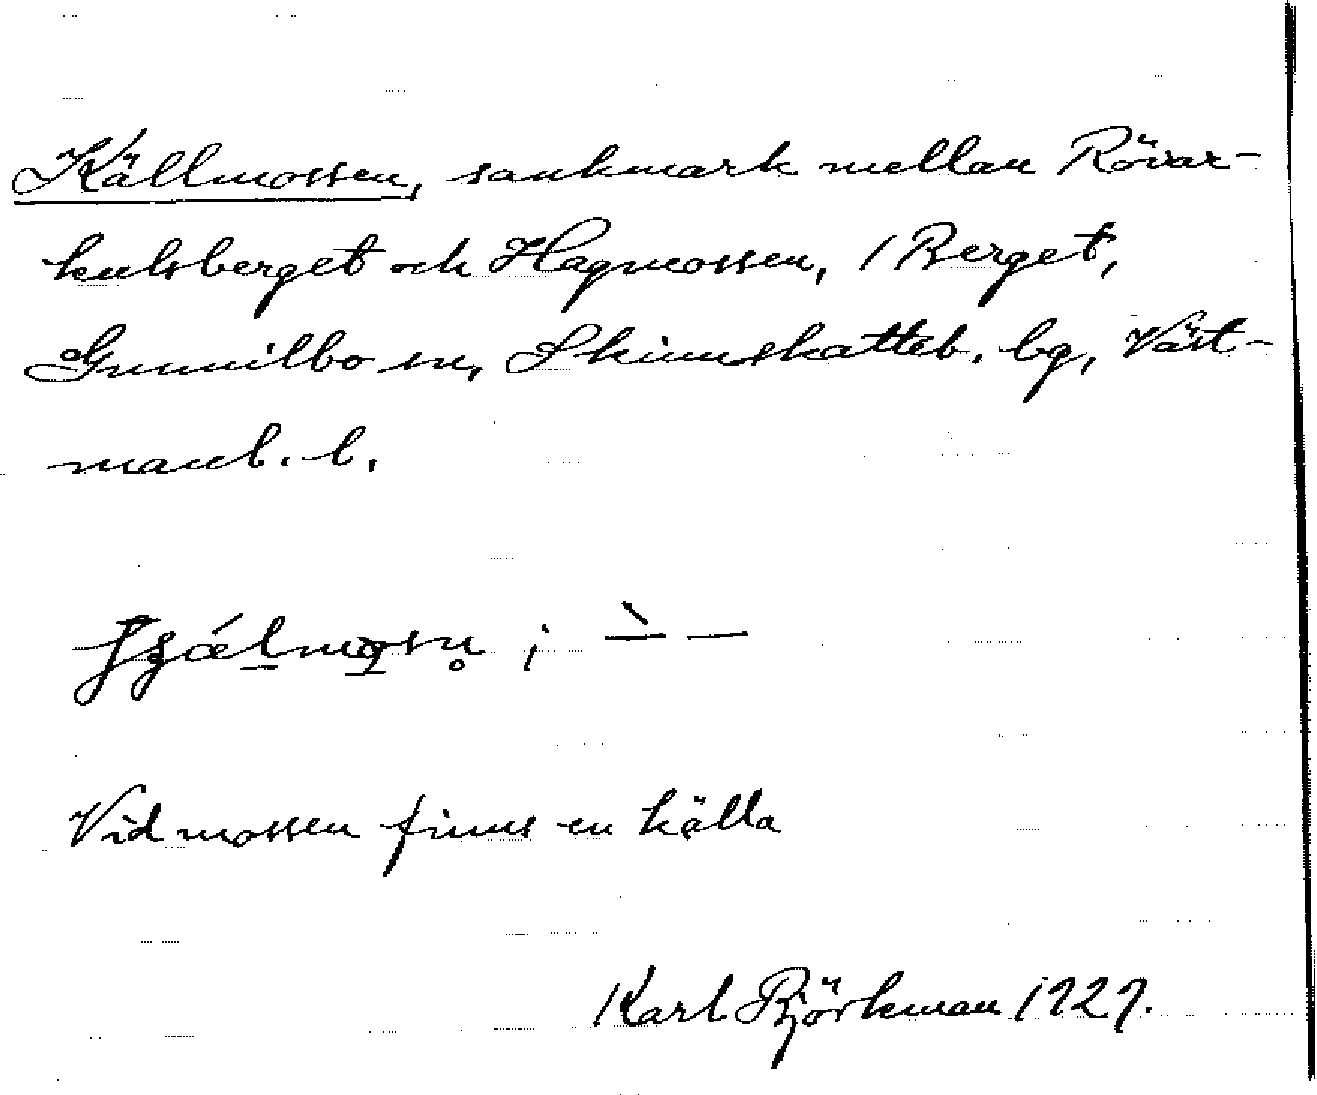 Källmossen, sankmark mellan Rövar-
kulsberget och Hagmossen, / Berget,
Gunnilbo sn, Skinnskatteb. bg, Väst-
manl. l.
Vid mossen finns en källa
Karl Björkman 1927.